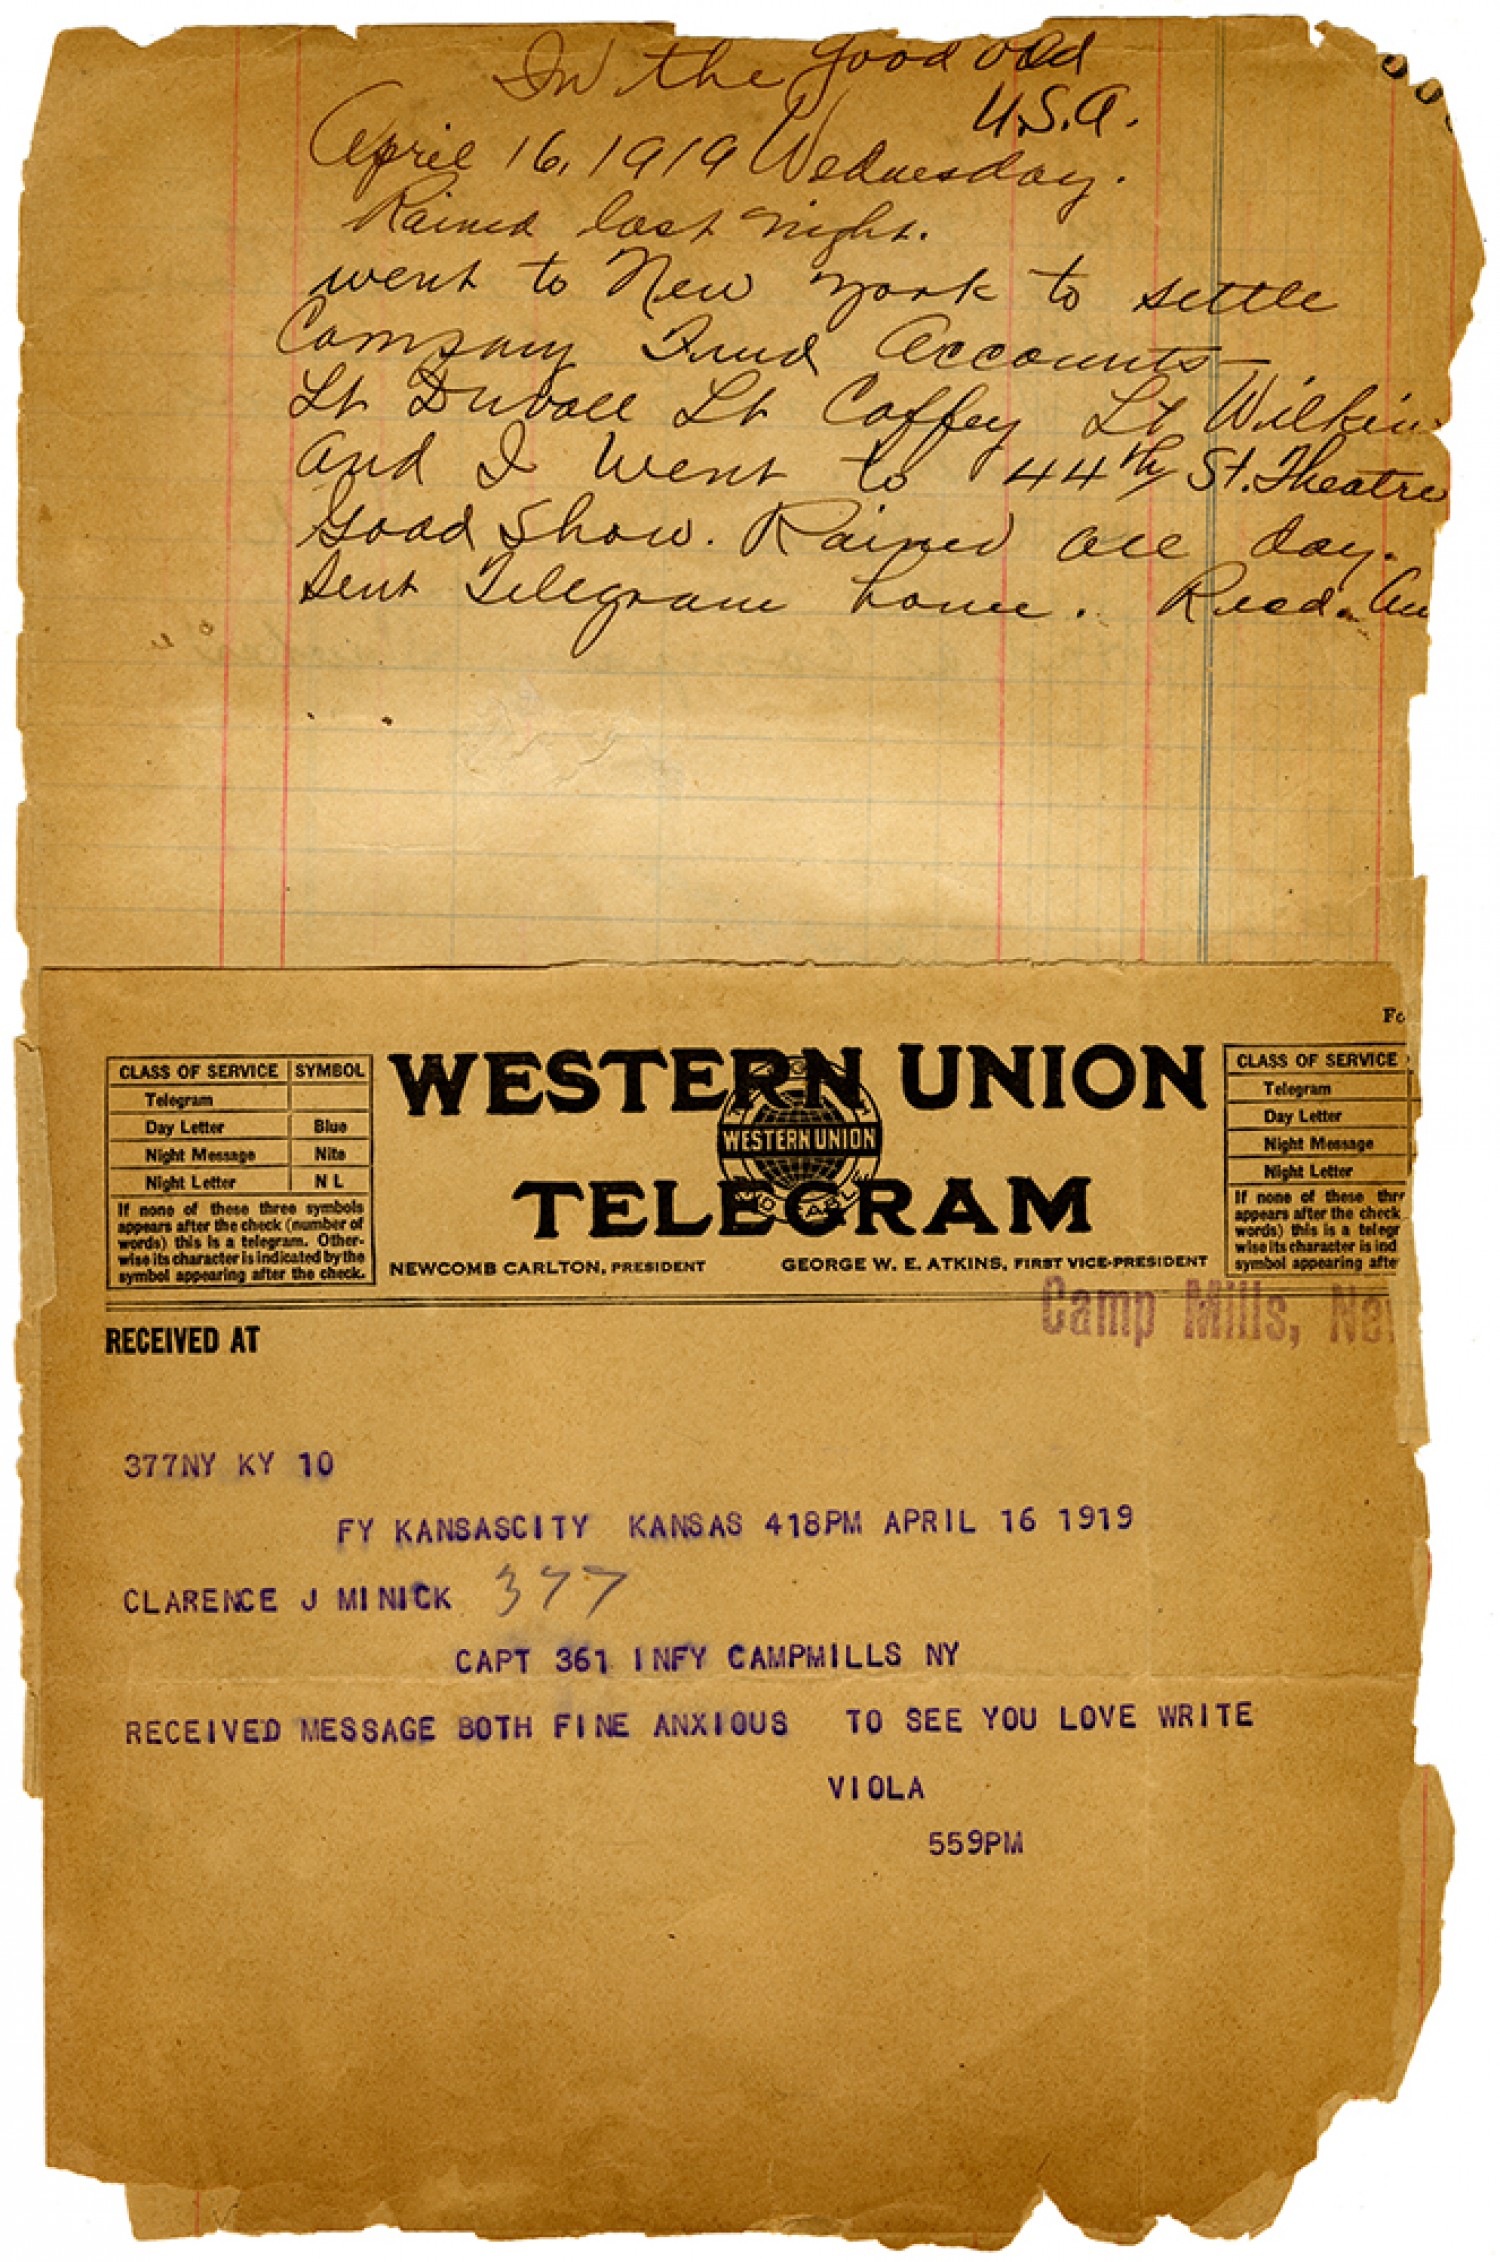 In the good old
U.S.A.
April 16, 1919 Wednesday.
Rained last night.
went to New York to settle
Company Fund Accounts
Lt Duvall Lt Coffey Lt Wilkin
and I went to 44th St. Theatre
Good Show. Rained all day.
Sent Telegram home. Recd.
Fo
CLASS OF SERVICE SYMBOL
Telegram
Day Letter Blue
Night Message Nite
Night Letter N L
If none of these three symbols
appears after the check (number of
words) this is a telegram. Other-
wise its character is indicated by the
symbol appearing after the check.
WESTERN UNION
WESTERN UNION
TELEGRAM
NEWCOMB CARLTON, PRESIDENT GEORGE W. E. ATKINS, FIRST VICE-PRESIDENT
CLASS OF SERVICE
Telegram
Day Letter
Night Message
Night Letter
If none of these thr
appears after the check
words) this is a telegr
wise its character is ind
symbol appearing afte
Camp Mills, New
RECEIVED AT
377NY KY 10
FY KANSASCITY KANSAS 418PM APRIL 16 1919
CLARENCE J MINICK 377
CAPT 361 INFY CAMPMILLS NY
RECEIVED MESSAGE BOTH FINE ANXIOUS TO SEE YOU LOVE WRITE
VIOLA
559PM